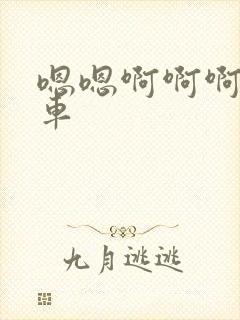 嗯嗯啊啊啊
車
九月逃逃